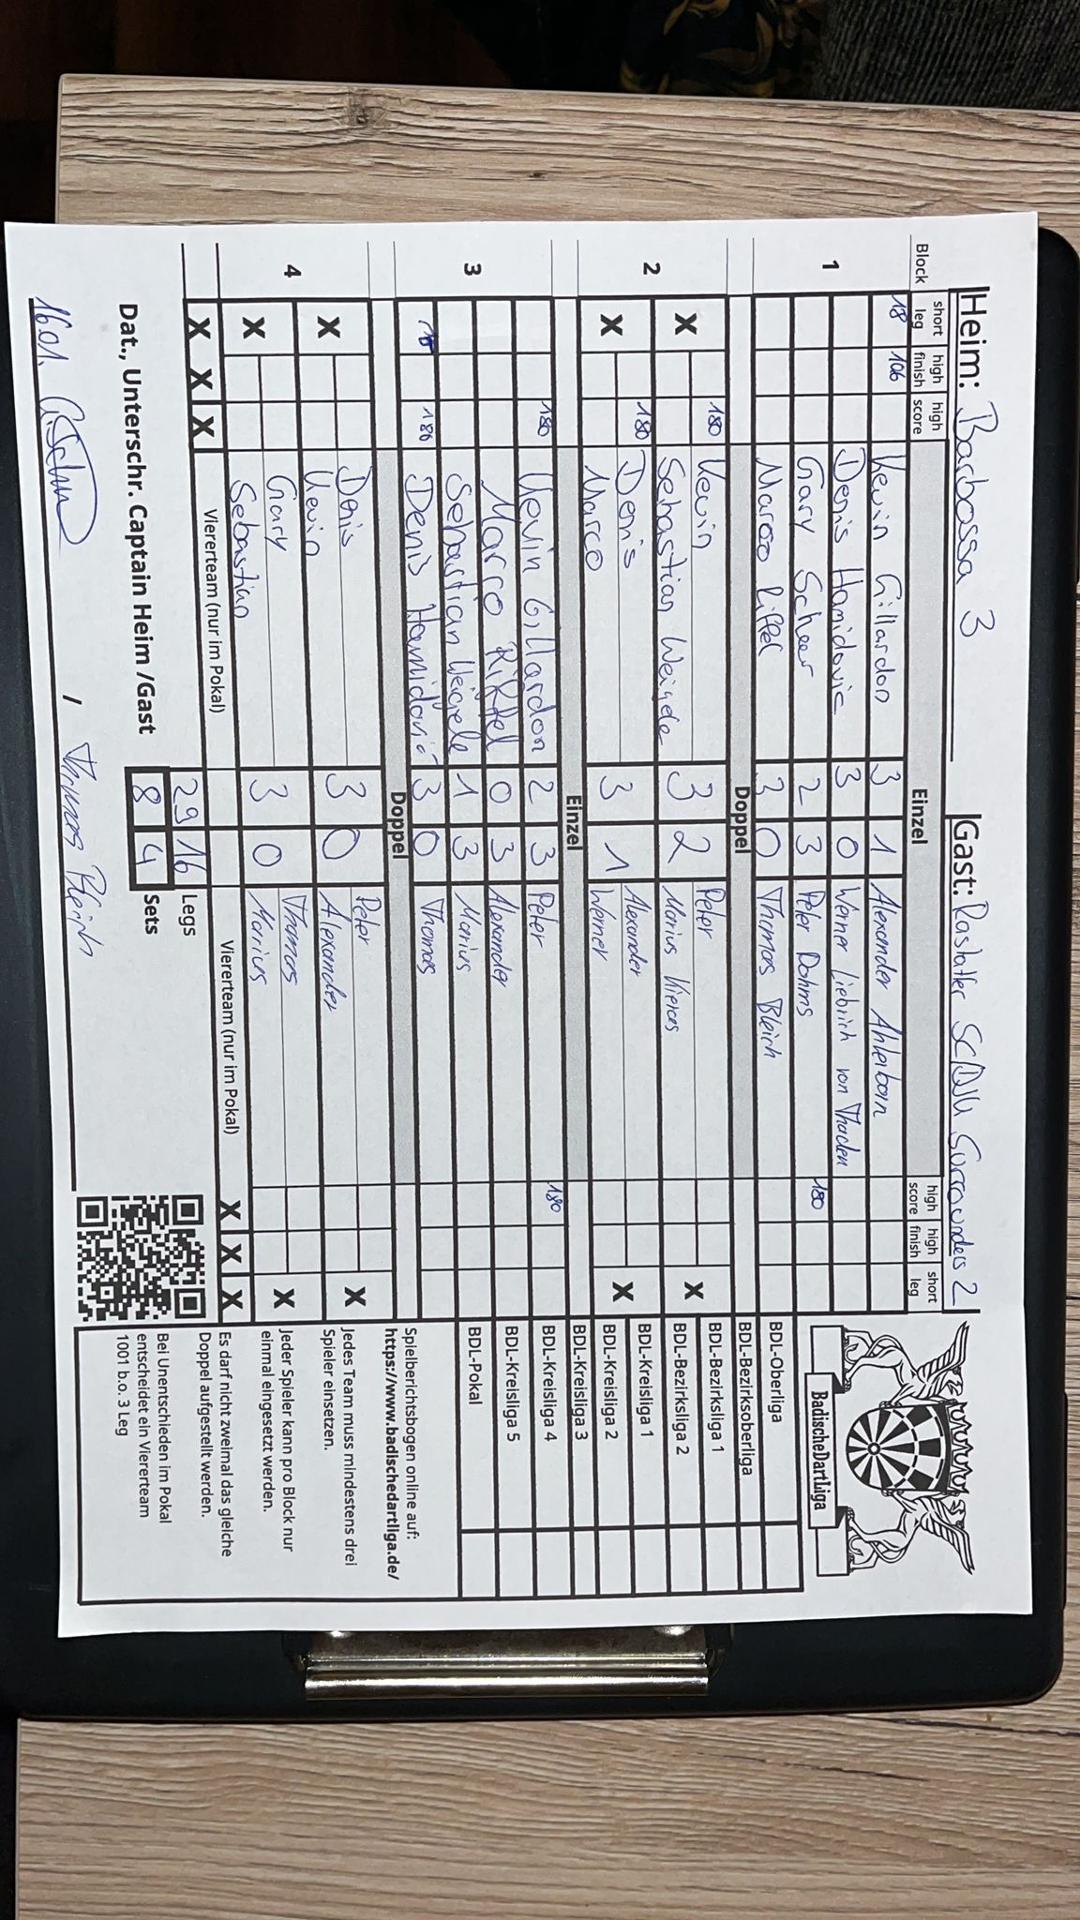 Heim: Barbossa 3 Gast: Rastatter SC DJK Surrounders 2
Block short leg high finish high score Einzel high score high finish short leg
1
18 106 Kevin Gillardon 3 1 Alexander Ahlerborn
Denis Hamidovic 3 0 Werner Liebrich von Thaden
Gary Scheer 2 3 Peter Dohms 180
Marco Riffel 3 0 Thomas Bleich
Doppel
2
180 Kevin 3 2 Peter
X Sebastian Weigele Marius X
180 Denis 3 1 Alexander
X Marco Werner X
Einzel
3
180 Kevin Gillardon 2 3 Peter 180
Marco Riffel 0 3 Alexander
Sebastian Weigele 1 3 Marius
180 Denis Hamidovic 3 0 Thomas
Doppel
4
Denis 3 0 Peter
X Kevin Alexander X
Gary 3 0 Thomas
X Sebastian Marius X
X X X Vierерteam (nur im Pokal) Viererteam (nur im Pokal) X X X
29 16 Legs
8 4 Sets
Dat., Unterschr. Captain Heim /Gast
16.01. / Thomas Bleich
BadischeDartLiga
BDL-Oberliga
BDL-Bezirksoberliga
BDL-Bezirksliga 1
BDL-Bezirksliga 2
BDL-Kreisliga 1
BDL-Kreisliga 2
BDL-Kreisliga 3
BDL-Kreisliga 4
BDL-Kreisliga 5
BDL-Pokal
Spielberichtsbogen online auf:
https://www.badischedartliga.de/
Jedes Team muss mindestens drei
Spieler einsetzen.
Jeder Spieler kann pro Block nur
einmal eingesetzt werden.
Es darf nicht zweimal das gleiche
Doppel aufgestellt werden.
Bei Unentschieden im Pokal
entscheidet ein Viererteam
1001 b.o. 3 Leg